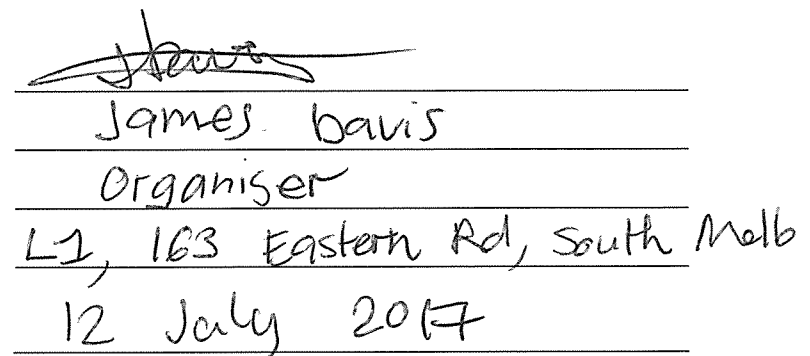 James Davis
Organiser
L1, 163 Eastern Rd, South Melb
12 July 2017